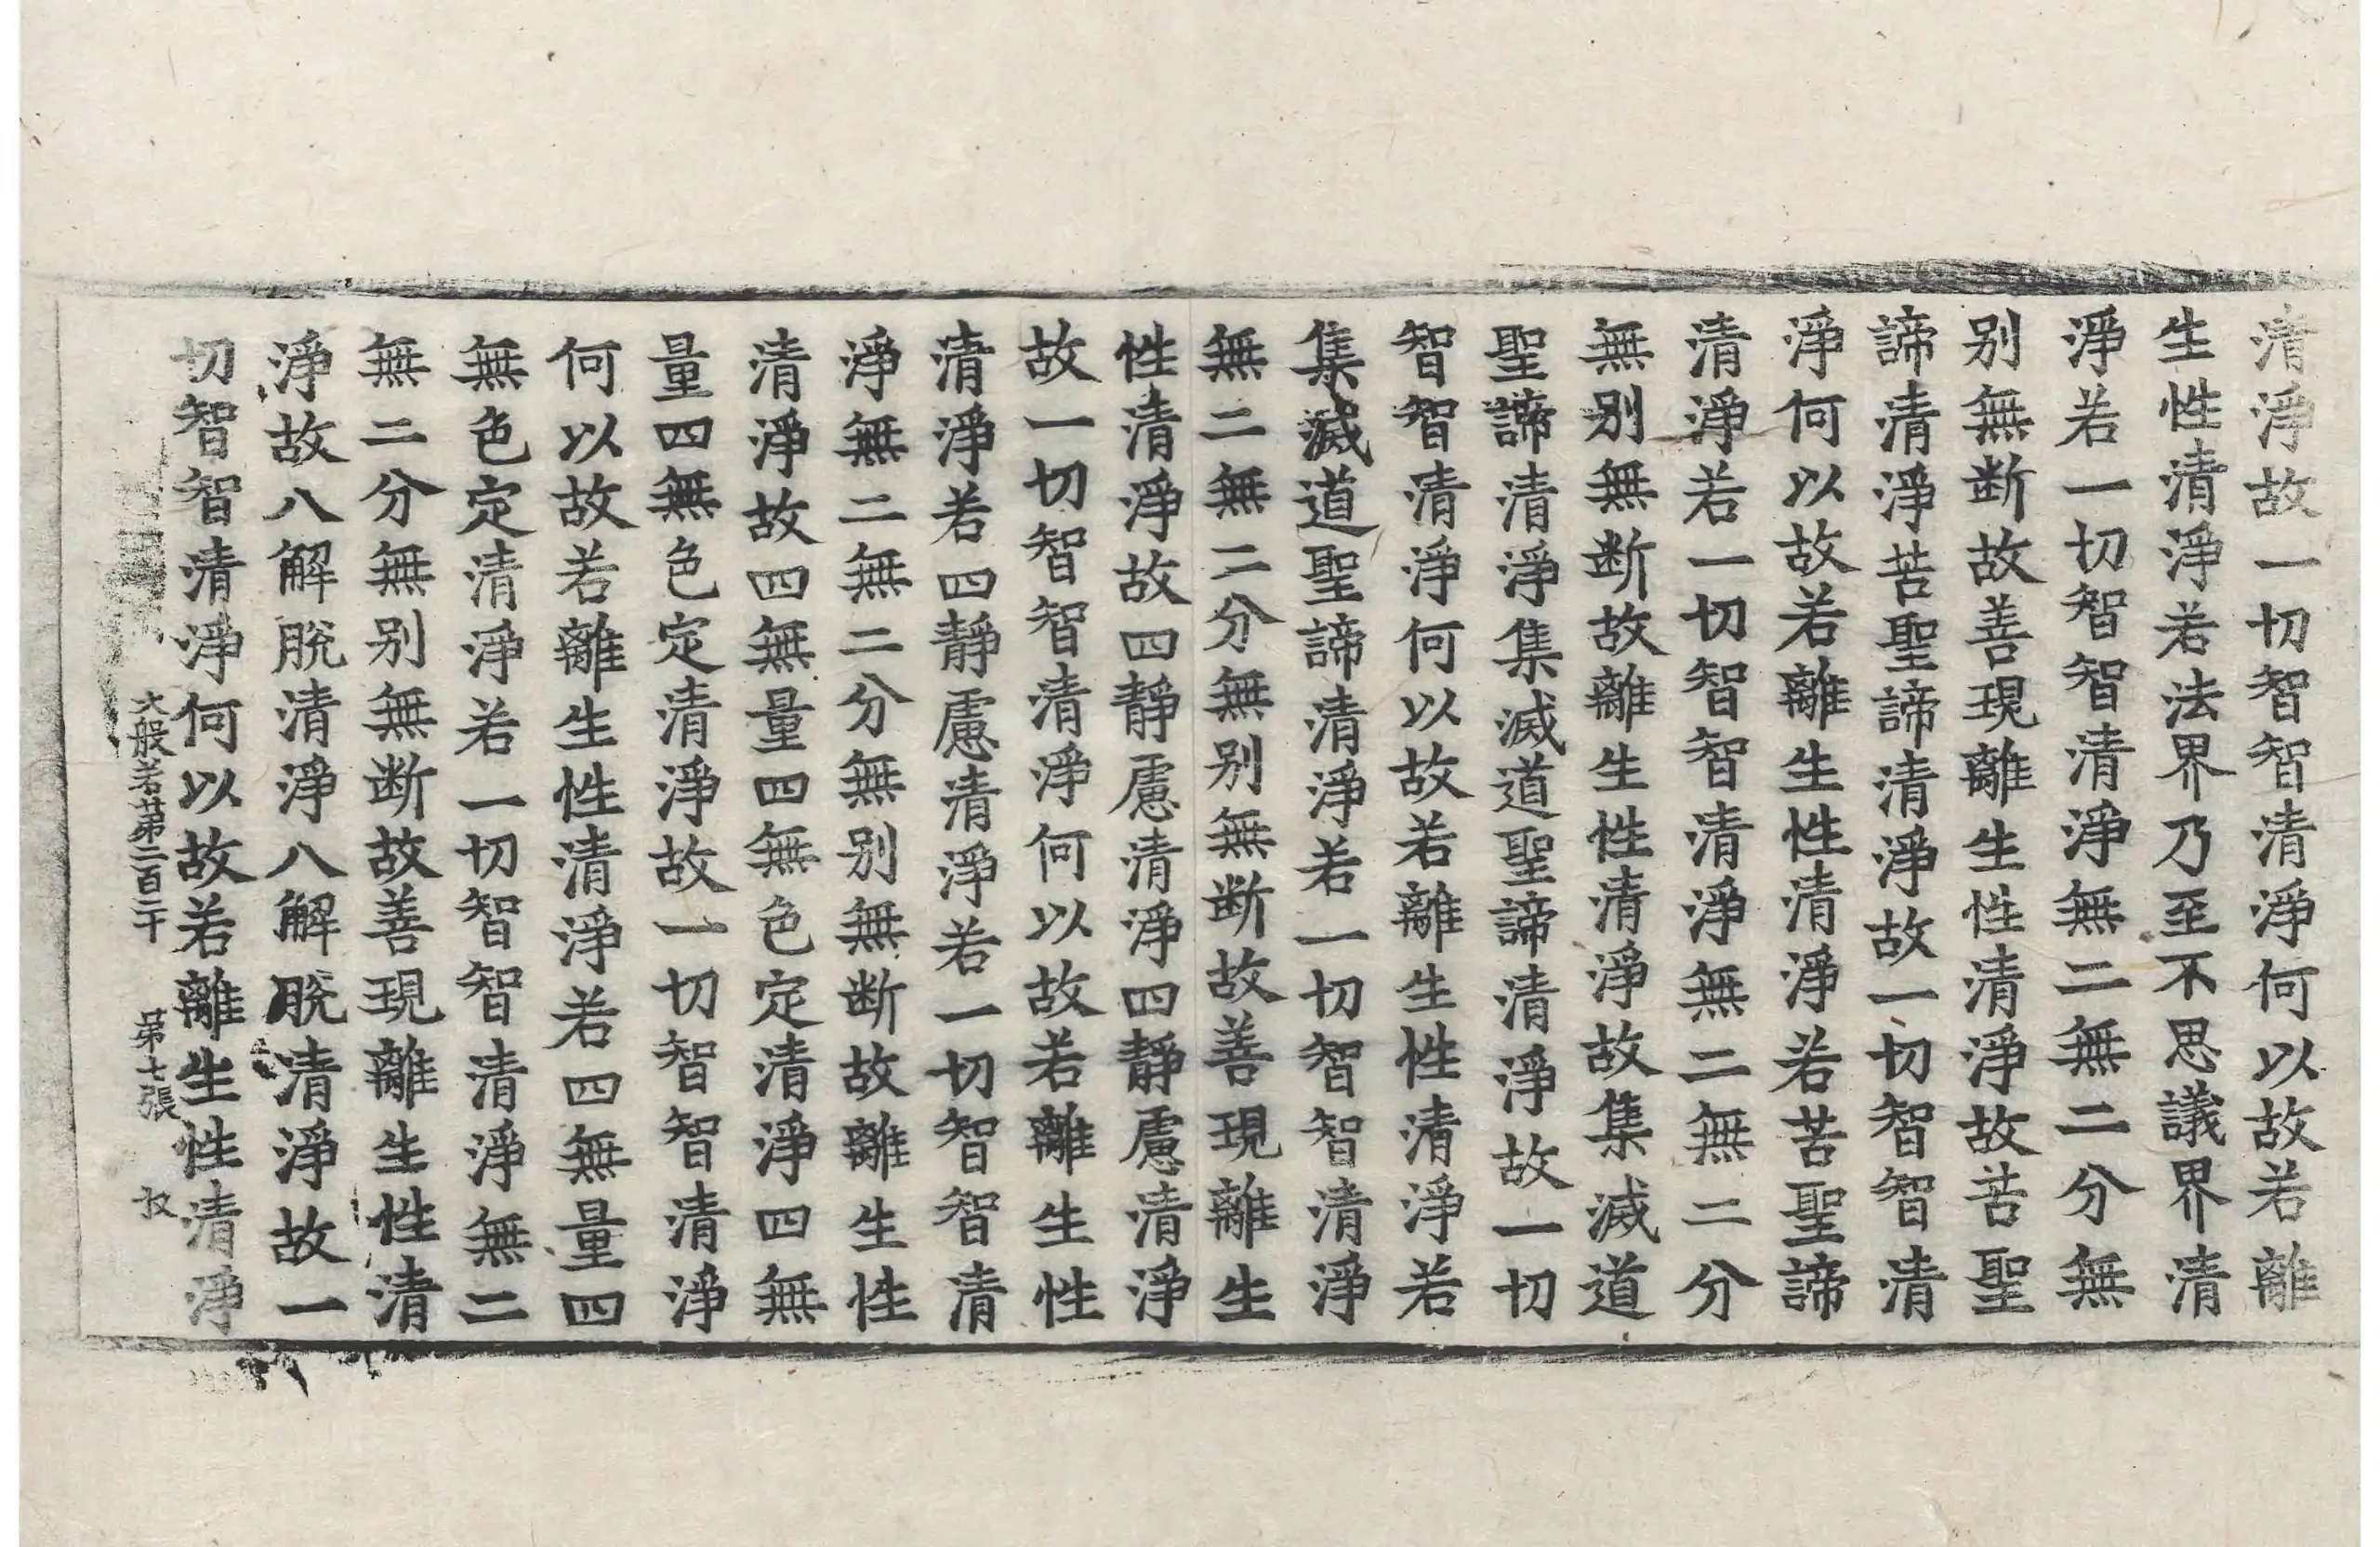 清淨故一切智智清淨何以故若離
生性清淨若法界乃至不思議界清
淨若一切智智清淨無二無二分無
别無断故善現離生性清淨故苦聖
諦清淨苦聖諦清淨故一切智智清
淨何以故若離生性清淨若苦聖諦
清淨若一切智智清淨無二無二分
無别無断故離生性清淨故集滅道
聖諦清淨集滅道聖諦清淨故一切
智智清淨何以故若離生性清淨若
集滅道聖諦清淨若一切智智清淨
無二無二分無别無断故善現離生
性清淨故四靜慮清淨四靜慮清淨
故一切智智清淨何以故若離生性
清淨若四靜慮清淨若一切智智清
淨無二無二分無别無断故離生性
清淨故四無量四無色定清淨四無
量四無色定清淨故一切智智清淨
何以故若離生性清淨若四無量四
無色定清淨若一切智智清淨無二
無二分無别無断故善現離生性清
淨故八解脫清淨八解脫清淨故一
切智智清淨何以故若離生性清淨
大般若苐二百二十 苐七張